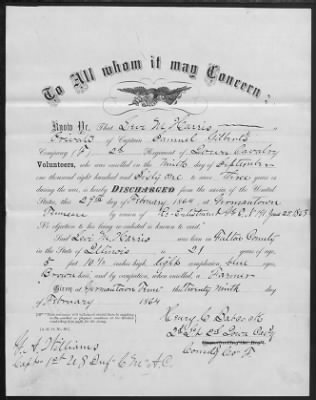 To All whom it may Concern:
Know Ye, That Levi M. Harris
Private of Captain Samuel Gilbert's
Company (F) 2d Regiment of Iowa Cavalry
Volunteers, who was enrolled on the Ninth day of September
one thousand eight hundred and Sixty one to serve Three years or
during the war, is hereby DISCHARGED from the service of the United
States, this 29th day of February 1864, at Germantown
Tennessee by reason of Re-Enlistment
No objection to his being re-enlisted is known to exist.
Said Levi M. Harris was born in Fulton County
in the State of Illinois is 21 years of age,
5 feet 10 1/2 inches high, light complexion, blue eyes,
Brown hair, and by occupation, when enrolled, a Farmer
Given at Germantown Tenn this Twenty Ninth day of
February 1864
Henry C. Babcock
2d Lt 2d Iowa Cav
Comdg Co F
Williams
Capt 1st U.S. Inf C.M.